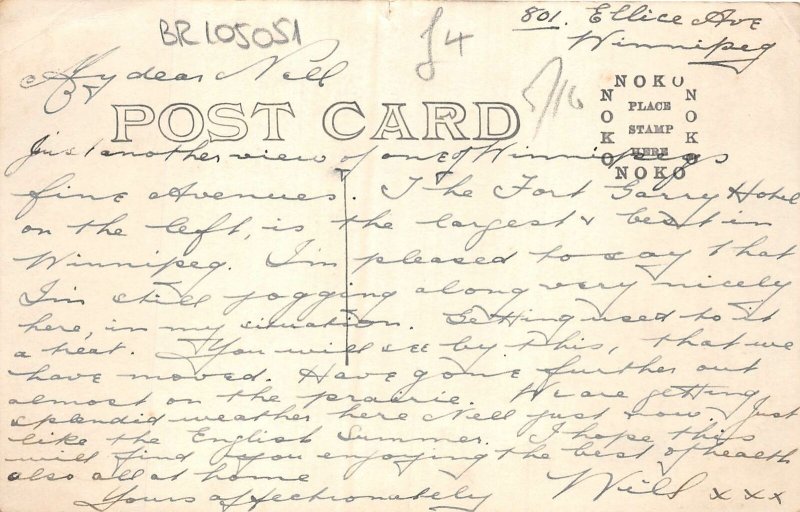 BR105051
£4
801. Ellice Ave
Winnipeg
My dear Nell
5/16
POST CARD
NOKO
NOKO
NOKO
NOKO
PLACE
STAMP
HERE
Just another view of one of Winnipegs
fine Avenues. The Fort Garry Hotel
on the left, is the largest & best in
Winnipeg. I'm pleased to say that
I'm still jogging along very nicely
here, in my situation. Getting used to it
a treat. You will see by this, that we
have moved. Have gone further out
almost on the prairie. We are getting
splendid weather here Nell just now. Just
like the English Summer. I hope this
will find you enjoying the best of health
also all at home
Yours affectionately Will xxx